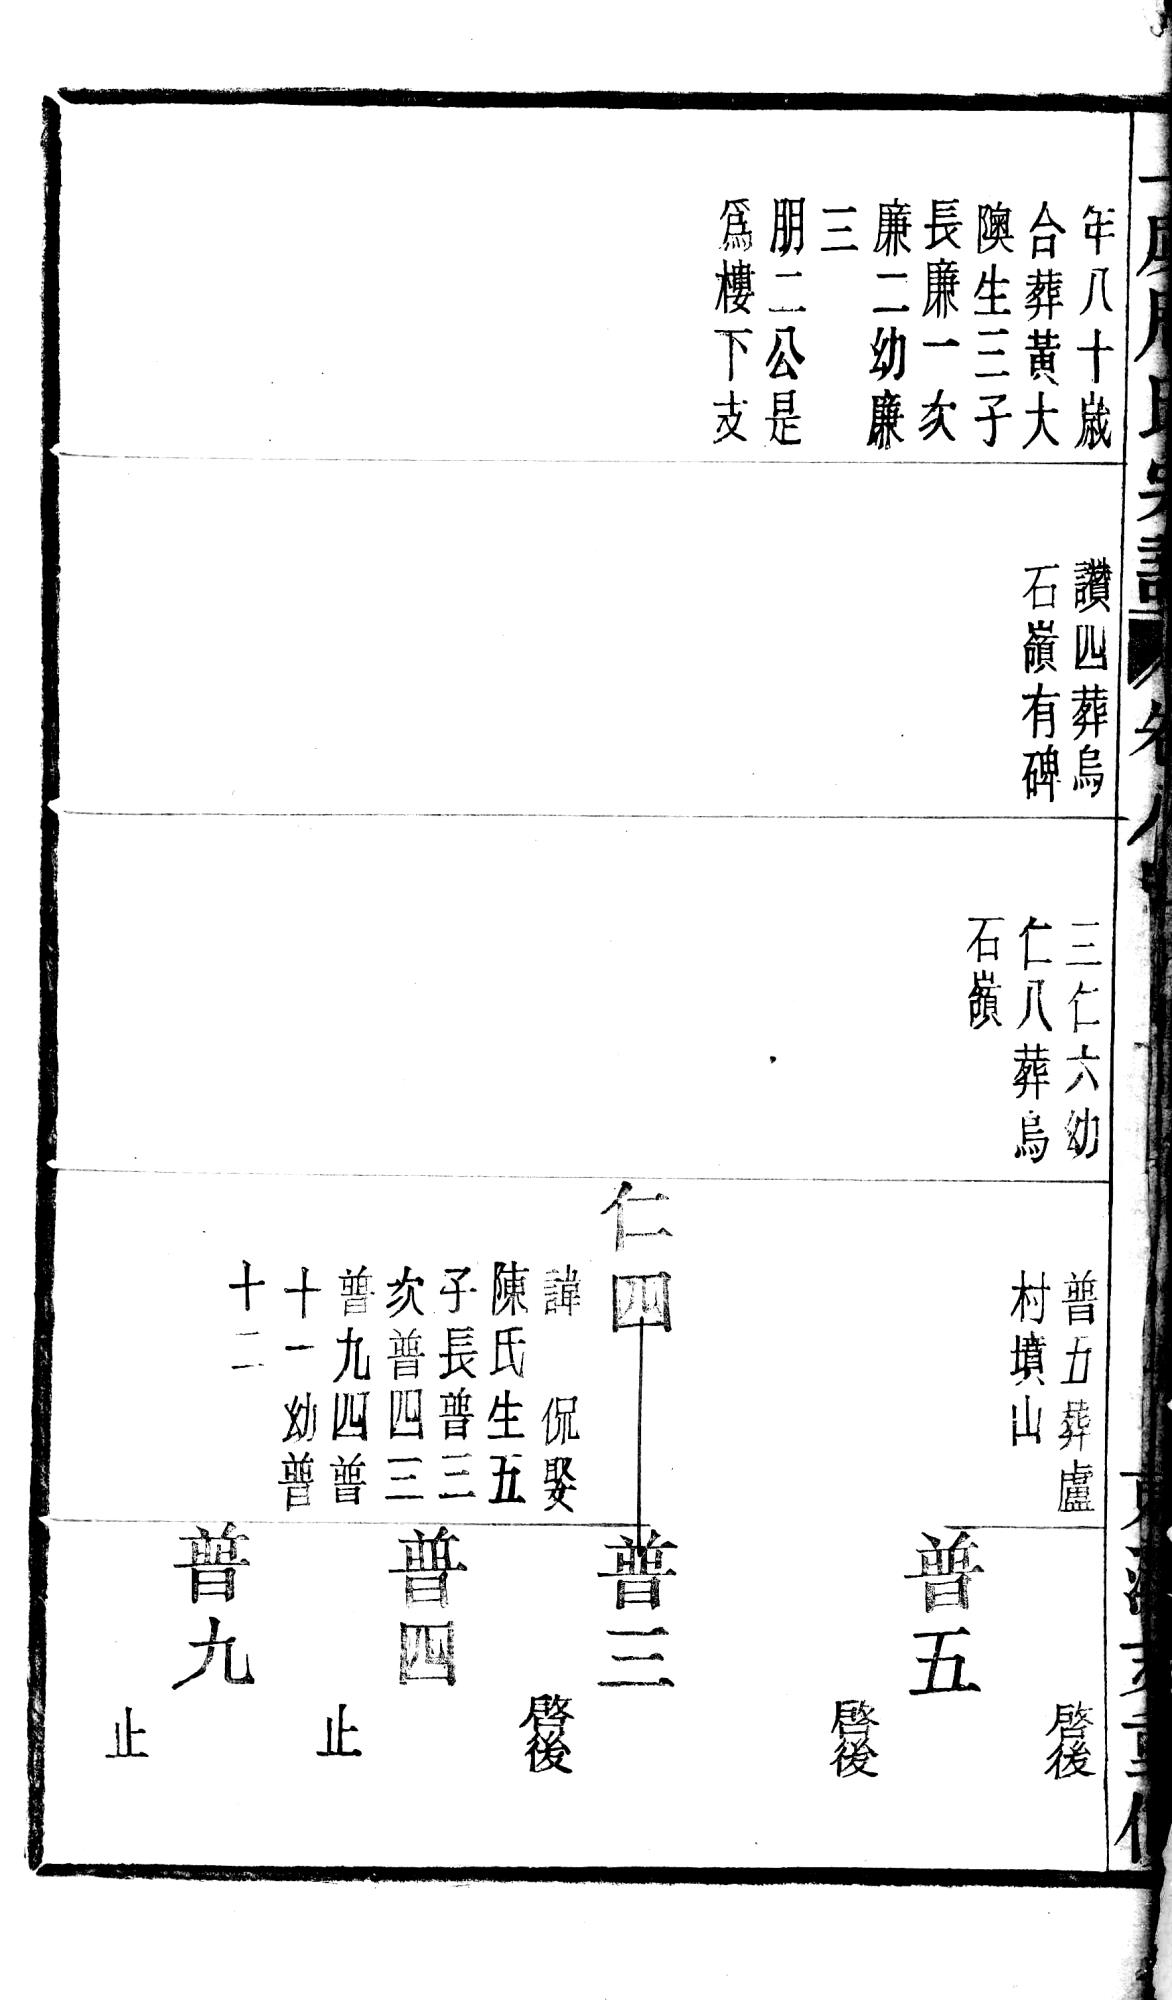 年八十歲
合葬黃大
隩生三子
長廉一次
廉二幼廉
三
朋二公是
爲樓下支
讚四葬烏
石嶺有碑
三仁六幼
仁八葬烏
石嶺
普五葬盧
村墳山
仁四
諱 侃娶
陳氏生五
子長普三
次普四三
普九四普
十一幼普
十二
啓後
普五
啓後
普三
啓後
普四
止
普九
止